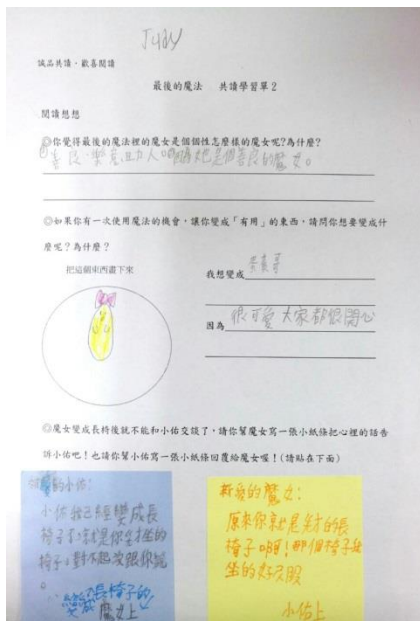 誠品共讀‧歡喜閱讀
最後的魔法 共讀學習單 2
閱讀想想
◎你覺得最後的魔法裡的魔女是個個性怎麼樣的魔女呢?為什麼?
善良、樂意助人 她是個善良的魔女。
◎如果你有一次使用魔法的機會,讓你變成「有用」的東西,請問你想要變成什
麼呢?為什麼?
把這個東西畫下來
我想變成
因為 很可愛 大家都很開心
◎魔女變成長椅後就不能和小佑交談了,請你幫魔女寫一張小紙條把心裡的話告
訴小佑吧!也請你幫小佑寫一張小紙條回覆給魔女喔!(請貼在下面)
的小佑:
小佑我已經變成長
椅子了就是你坐的
椅子,對不起沒跟你說
。
變成長椅子的
魔女上
親愛的魔女:
原來你就是 的長
椅子啊!那個椅子
坐的好舒服
小佑上